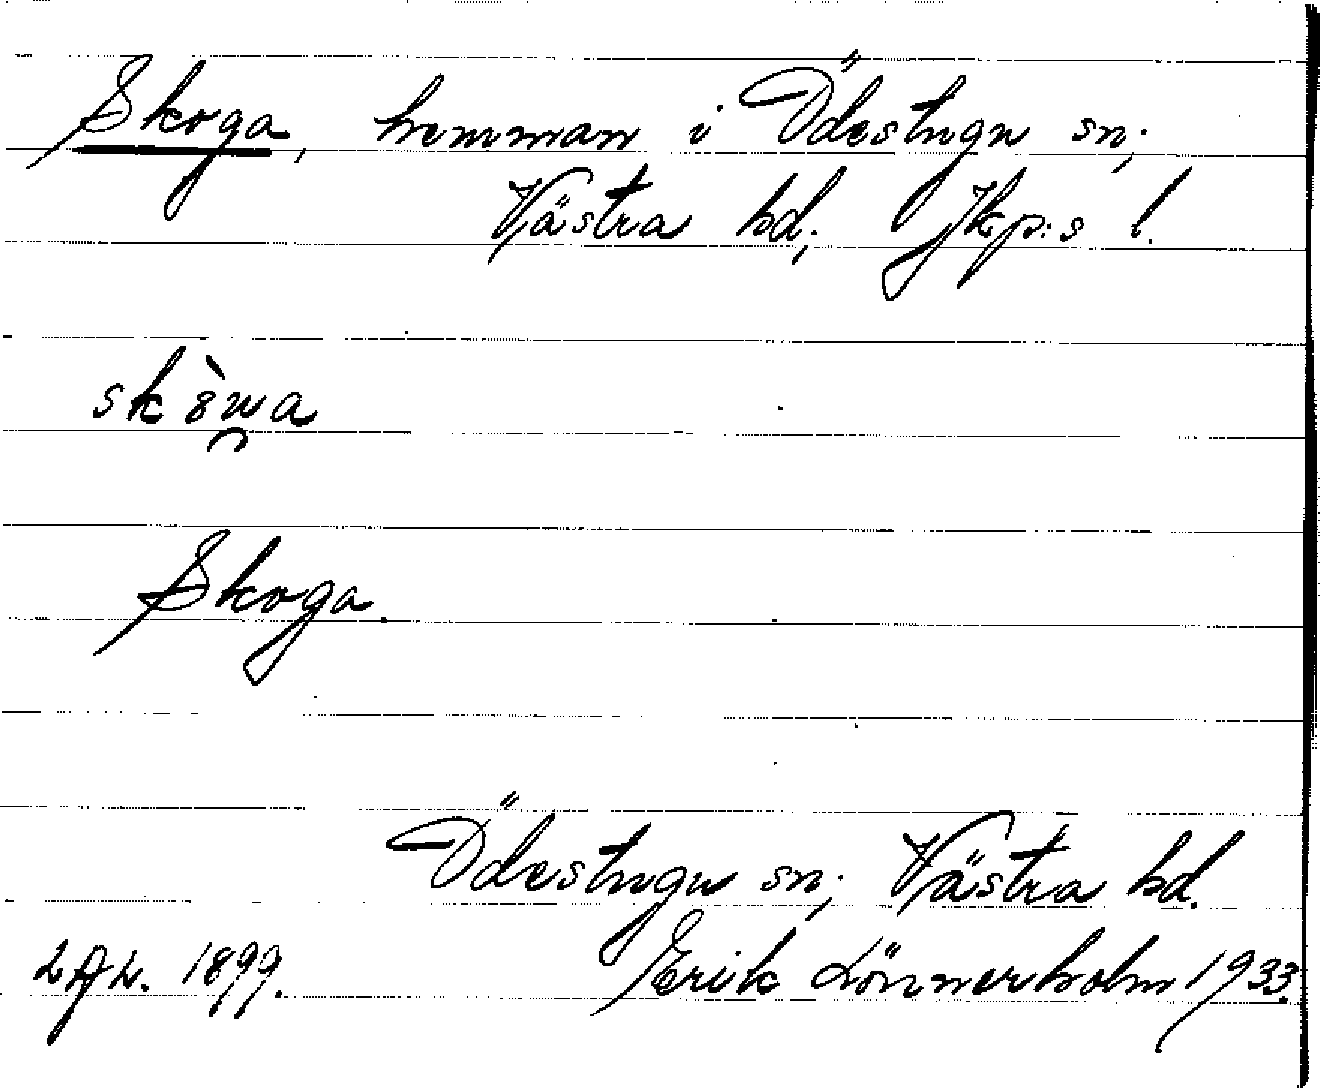 Skoga, hemman i Ödestugu sn;
Västra hd; Jkp:s l.
Skoga.
Ödestugu sn; Västra hd.
1899. Erik Lönnerholm 1933.